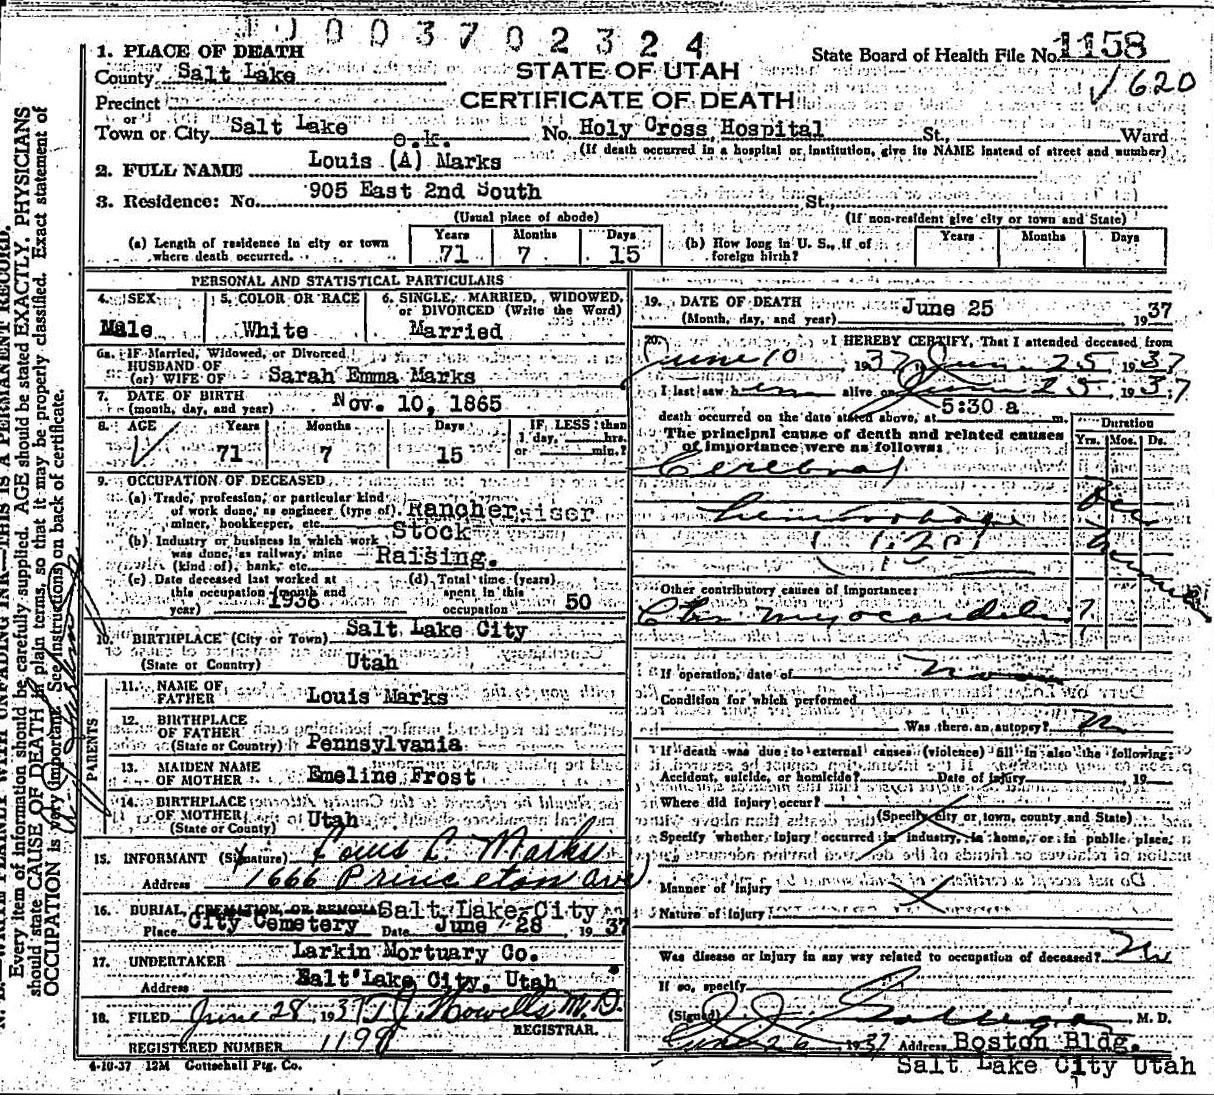 0003702324
1. PLACE OF DEATH
State Board of Health File No. 1158
County Salt Lake
STATE OF UTAH
620
Precinct
CERTIFICATE OF DEATH
or
Town or City Salt Lake No. Holy Cross Hospital St., Ward
(If death occurred in a hospital or institution, give its NAME instead of street and number)
o.k.
2. FULL NAME Louis (A) Marks
3. Residence: No. 905 East 2nd South St.,
(Usual place of abode) (If non-resident give city or town and State)
(a) Length of residence in city or town where death occurred. Years 71 Months 7 Days 15
(b) How long in U. S., if of foreign birth? Years Months Days
PERSONAL AND STATISTICAL PARTICULARS
4. SEX Male
5. COLOR OR RACE White
6. SINGLE, MARRIED, WIDOWED, or DIVORCED (Write the Word) Married
6a. IF Married, Widowed, or Divorced
HUSBAND OF
(or) WIFE OF Sarah Emma Marks
7. DATE OF BIRTH
(month, day, and year) Nov. 10, 1865
8. AGE Years 71 Months 7 Days 15 IF LESS than 1 day, hrs. or min.?
9. OCCUPATION OF DECEASED
(a) Trade, profession, or particular kind
of work done, as engineer (type of). Rancher
miner, bookkeeper, etc.
(b) Industry or business in which work Stock
was done, as railway, mine Raising.
(kind of), bank, etc.
(c) Date deceased last worked at this occupation (month and year) 1936
(d) Total time (years) spent in this occupation 50
10. BIRTHPLACE (City or Town) Salt Lake City
(State or Country) Utah
PARENTS
11. NAME OF FATHER Louis Marks
12. BIRTHPLACE OF FATHER
(State or Country) Pennsylvania
13. MAIDEN NAME OF MOTHER Emeline Frost
14. BIRTHPLACE OF MOTHER
(State or Country) Utah
15. INFORMANT (Signature) Louis C. Marks
Address 1666 Princeton Ave
16. BURIAL, CREMATION, OR REMOVAL Salt Lake City
Place City Cemetery Date June 28, 1937
17. UNDERTAKER Larkin Mortuary Co.
Address Salt Lake City, Utah
18. FILED June 28, 1937 T. J. Howells M.D.
REGISTRAR.
REGISTERED NUMBER
4-10-37 12M Gottschall Ptg. Co.
19. DATE OF DEATH
(Month, day, and year) June 25 1937
20. I HEREBY CERTIFY, That I attended deceased from
June 10, 1937, to June 25, 1937
I last saw him alive on June 25, 1937
death occurred on the date stated above, at 5:30 a m.
The principal cause of death and related causes
of importance were as follows:
Duration
Yrs. Mos. Ds.
Cerebral
hemorrhage
Other contributory causes of importance:
Chr. myocarditis ?
If operation, date of none
Condition for which performed
Was there an autopsy? No
If death was due to external causes (violence) fill in also the following:
Accident, suicide, or homicide? Date of injury 19
Where did injury occur?
(Specify city or town, county and State)
Specify whether injury occurred in industry, in home, or in public place.
Manner of Injury
Nature of Injury
Was disease or injury in any way related to occupation of deceased? No
If so, specify
(Signed) M. D.
June 26 1937 Address Boston Bldg.
Salt Lake City Utah
N. B. WRITE PLAINLY WITH UNFADING INK—THIS IS A PERMANENT RECORD.
Every item of information should be carefully supplied. AGE should be stated EXACTLY. PHYSICIANS
should state CAUSE OF DEATH in plain terms, so that it may be properly classified. Exact statement of
OCCUPATION is very important. See instructions on back of certificate.